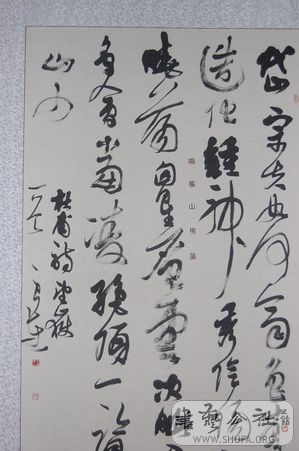 岱宗夫如何齊魯
造化鍾神秀陰陽
曉蕩胸生層雲決眦
會當凌絕頂一覽
山小
杜甫詩望嶽
鳴箏山房箋
書藝公社
WWW.SHUFA.ORG